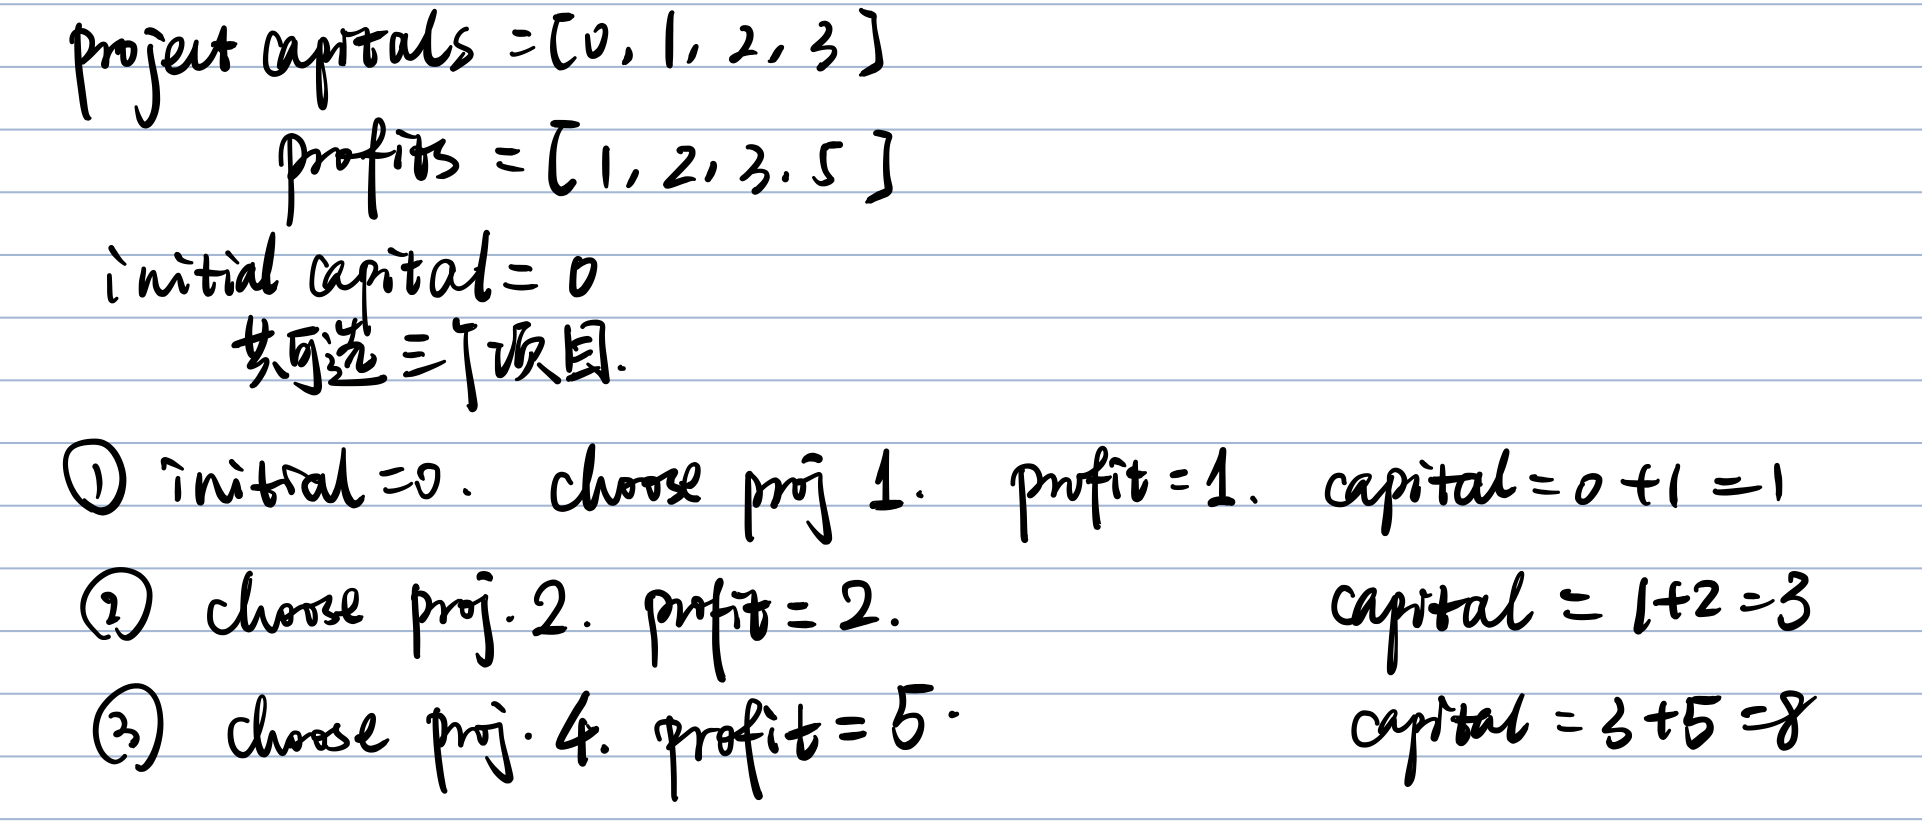 project capitals = [0, 1, 2, 3]
profits = [1, 2, 3. 5]
initial capital = 0
共可选三个项目.
① initial = 0. choose proj 1. profit = 1. capital = 0 + 1 = 1
② choose proj. 2. profit = 2. capital = 1 + 2 = 3
③ choose proj. 4. profit = 5. capital = 3 + 5 = 8